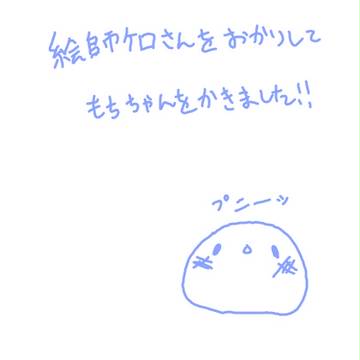 絵師ケロさんをおかりして
もちちゃんをかきました!!
プニーッ